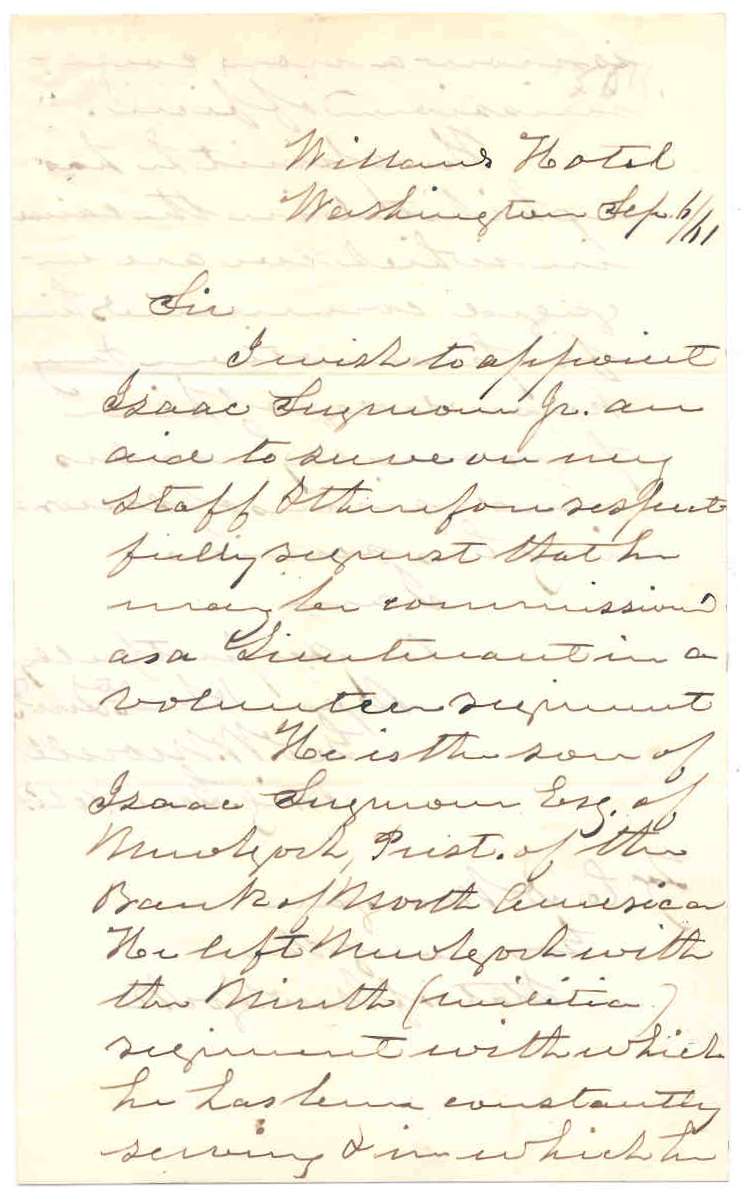 Willards Hotel
Washington Sep. 6/61
Sir
I wish to appoint
Isaac Seymour Jr. an
aid to serve on my
staff & therefore respect
fully request that he
may be commissioned
as a Lieutenant in a
volunteer regiment
He is the son of
Isaac Seymour Esq. of
New York, Prest. of the
Bank of North America
He left New York with
the Ninth (militia)
regiment with which
he has been constantly
serving & in which he